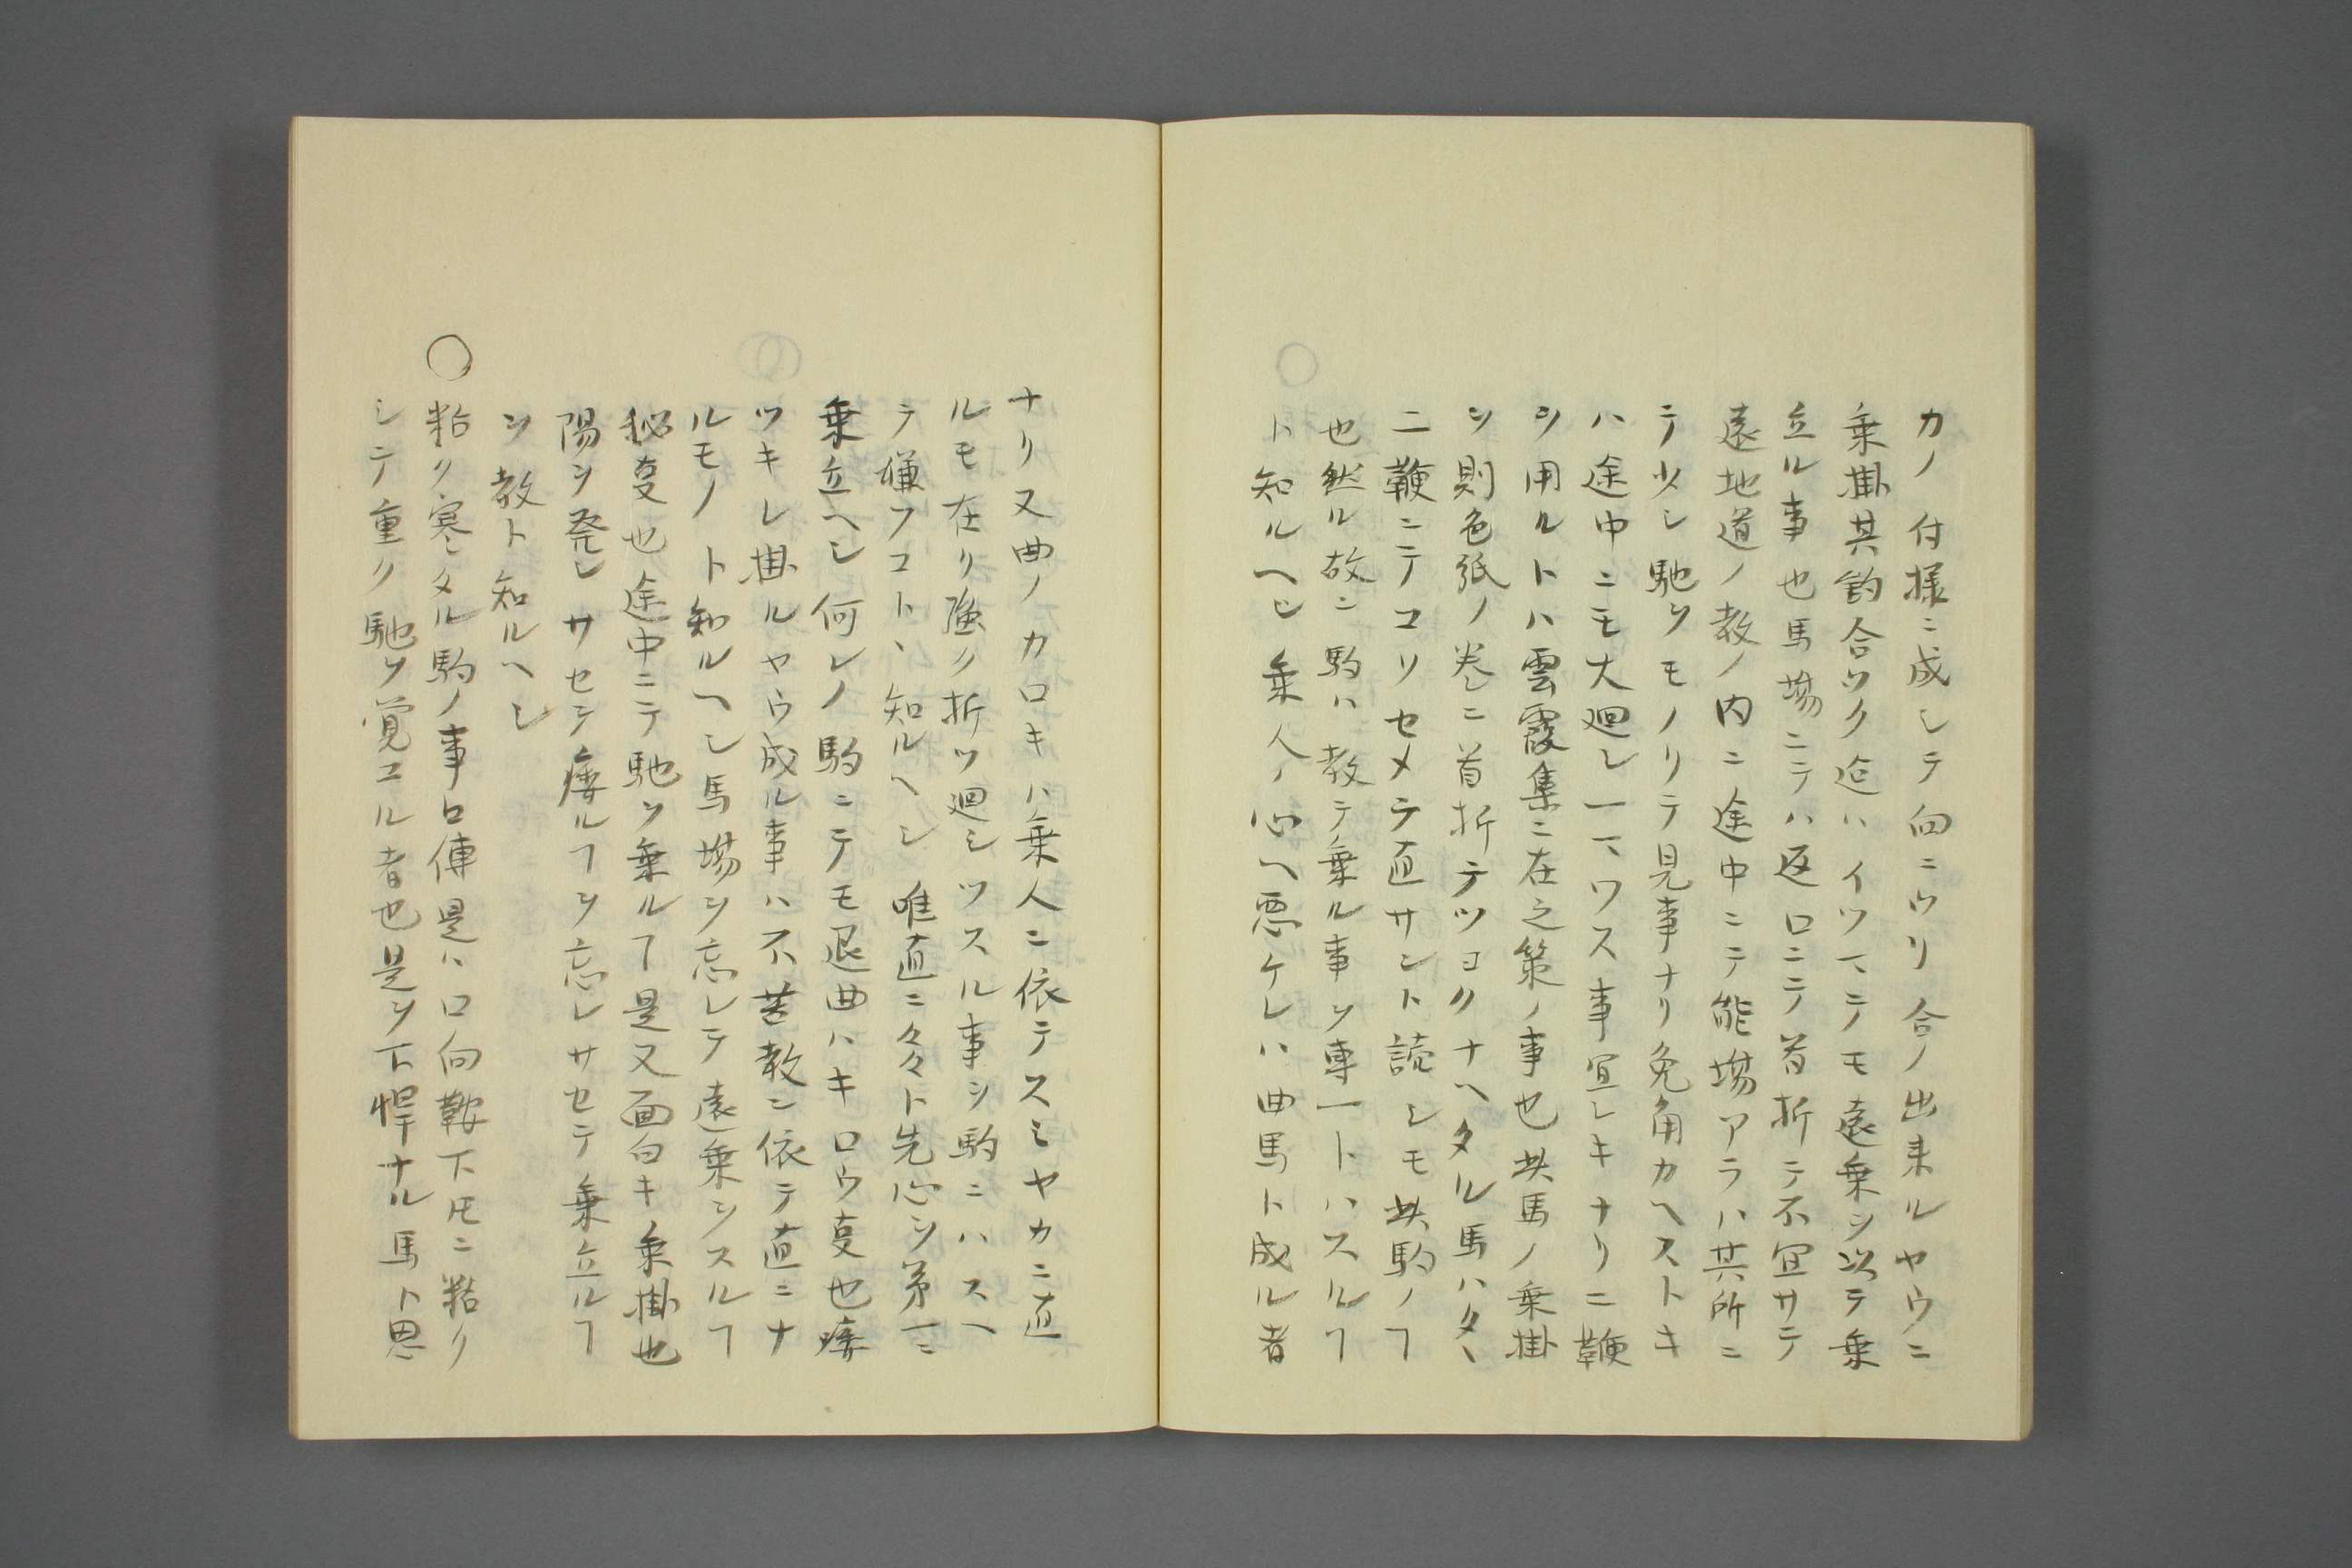 カノ付様ニ成シテ向ニウリ合ノ出来ルヤウニ
乗掛其釣合ツク迄ハイツマテモ遠乗ヲ以テ乗
立ル事也馬場ニテハ返ロニテ首折テ不宜サテ
遠地道ノ教ノ内ニ途中ニテ能場アラハ其所ニ
テ少シ馳ヲモノリテ見事ナリ免角カヘストキ
ハ途中ニモ大廻シニマワス事宜シキナリニ鞭
ヲ用ルトハ雲霞集ニ在之策ノ事也此馬ノ乗掛
ヲ則色紙ノ巻ニ首折テツヨクナヘタル馬ハタヽ
二鞭ニテコリセメテ直サント読シモ此駒ノヿ
也然ル故ニ駒ハ教テ乗ル事ヲ専一トハスルヿ
ト知ルヘシ乗人ノ心ヘ悪ケレハ曲馬ト成ル者
ナリ又曲ノカロキハ乗人ニ依テスミヤカニ直
ルモ在リ強ク折ツ廻シツスル事ヲ駒ニハスヘ
テ嫌フコトヽ知ルヘシ唯直ニ々々ト先心ヲ第一ニ
乗立ヘシ何レノ駒ニテモ退曲ハキロウ㕝也痿
ツキレ掛ルヤウ成ル事ハ不苦教ニ依テ直ニナ
ルモノト知ルヘシ馬場ヲ忘レテ遠乗ヲスルヿ
秘㕝也途中ニテ馳ヲ乗ルヿ是又面白キ乗掛也
陽ヲ発シサセテ痿ルヿヲ忘レサセテ乗立ルヿ
ヲ教ト知ルヘシ
○粘ク寒タル駒ノ事口傳是ハ口向鞍下𪜈ニ粘ク
シテ重ク馳ヲ覚ユル者也是ヲ下悍ナル馬ト思